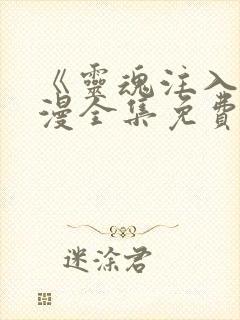 《靈魂注入
漫全集免費
迷涂君